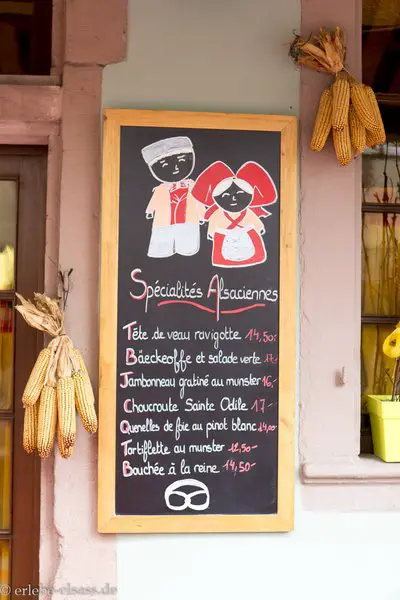 Spécialités Alsaciennes
Tête de veau ravigotte 14,50-
Bäeckeoffe et salade verte 17-
Jambonneau gratiné au munster 16,-
Choucroute Sainte Odile 17-
Quenelles de foie au pinot blanc 14,00
Tartiflette au munster 12,50-
Bouchée à la reine 14,50-
© erlebe-elsass.de